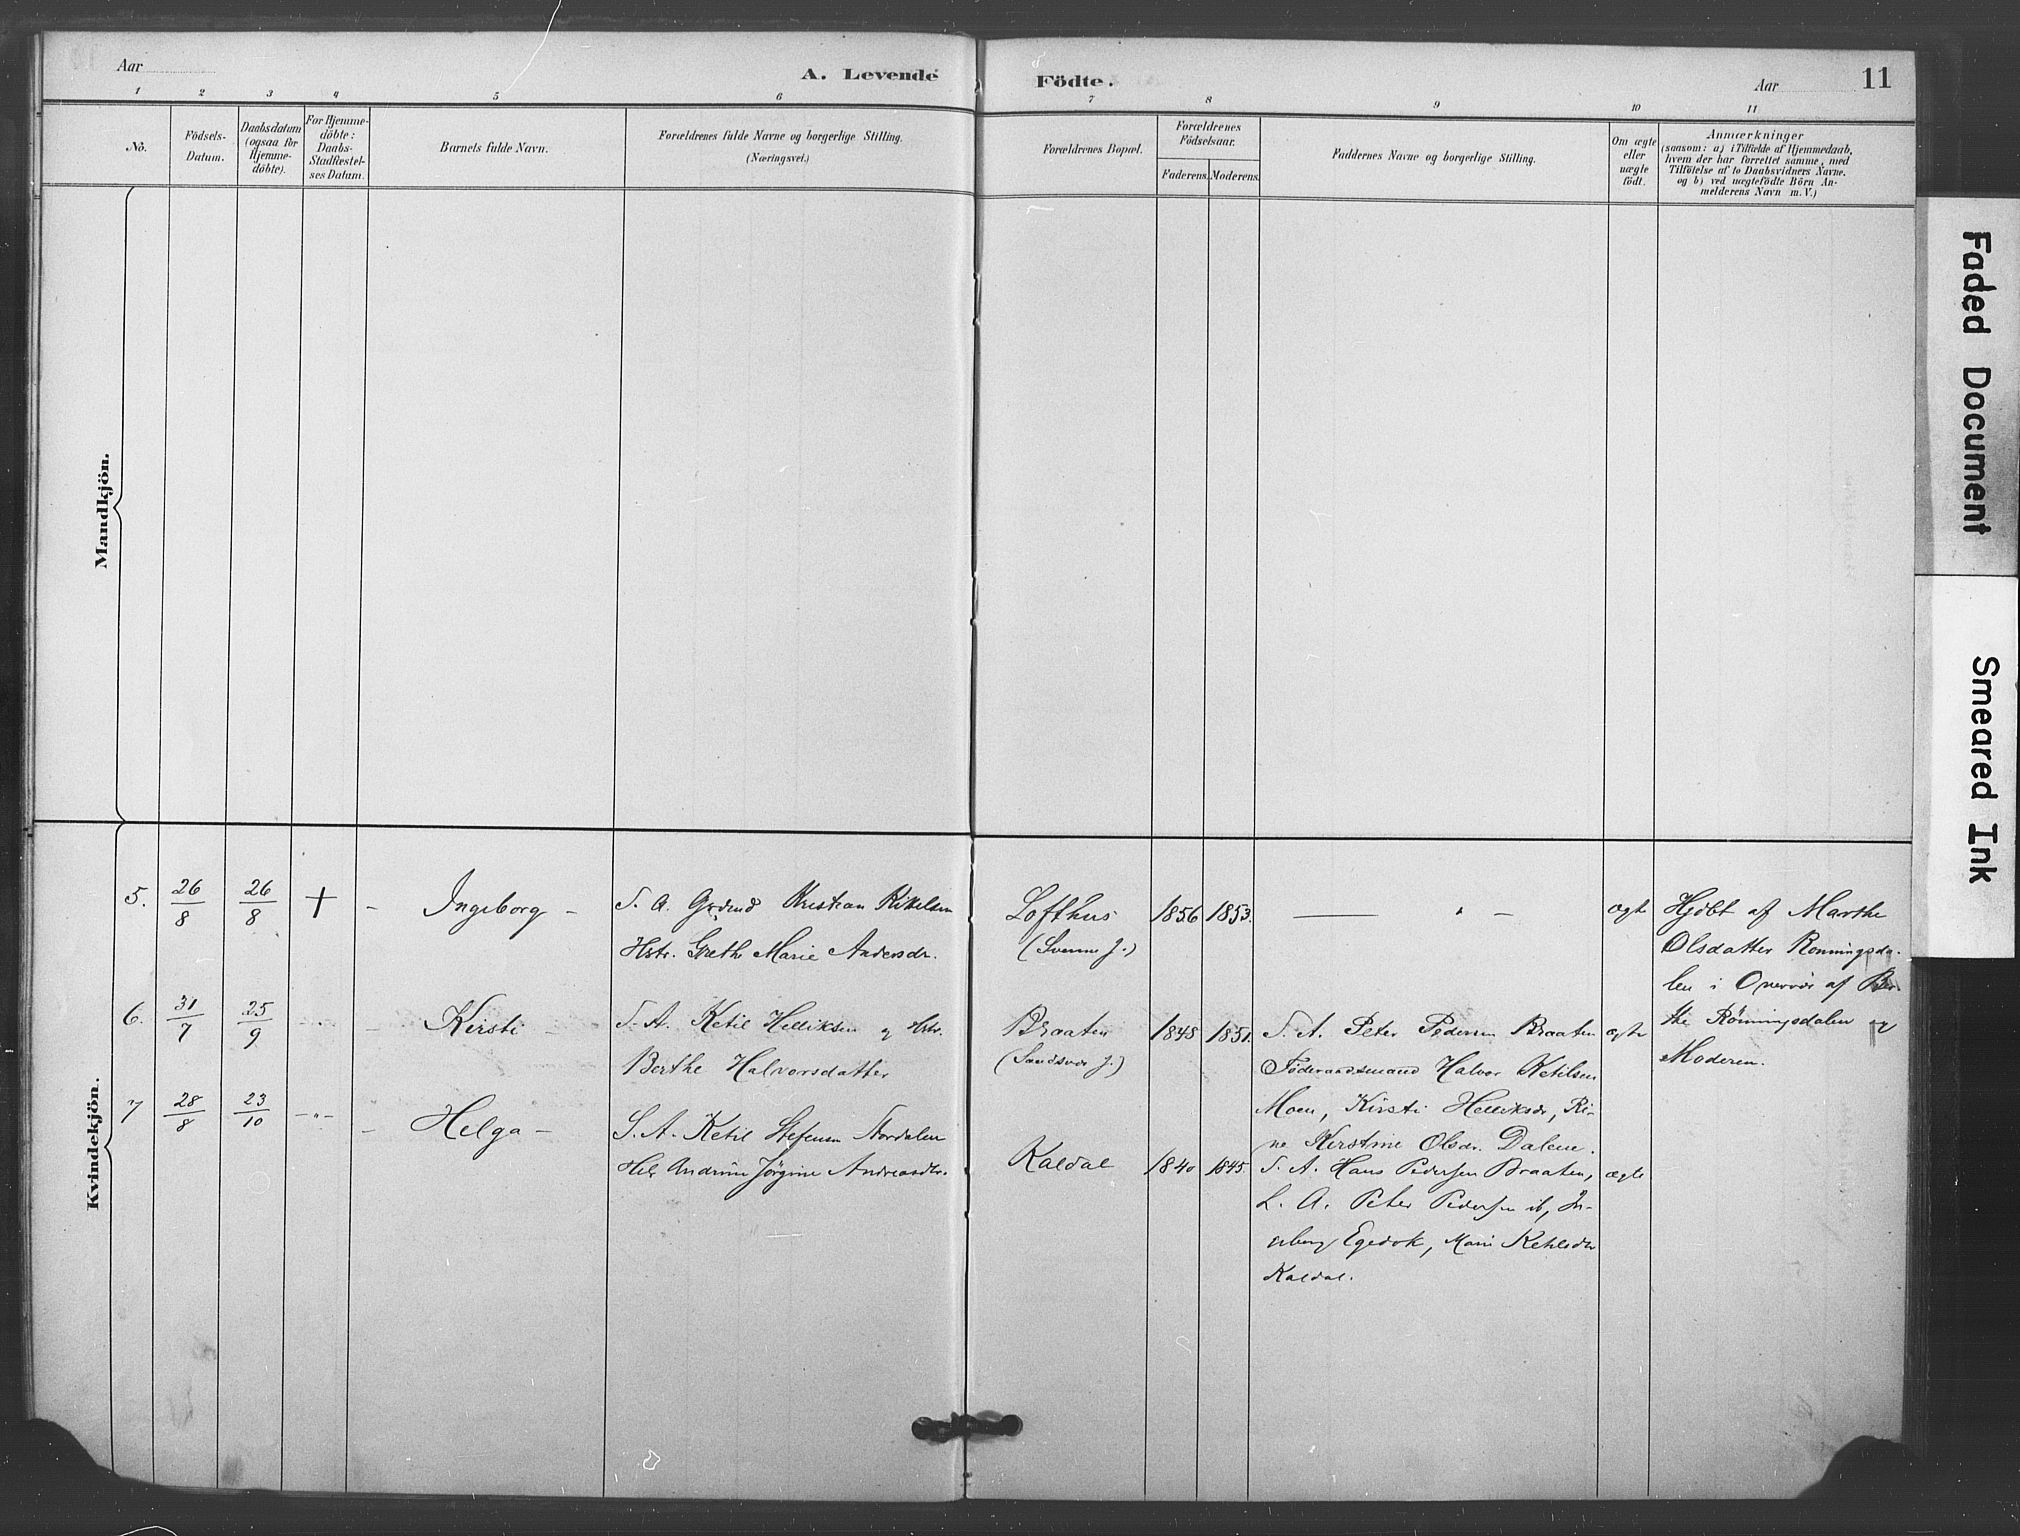 Aar
A. Levende
Födte.
Aar
11
1 2 3 4 5 6 7 8 9 10 11
No.
Födsels-
Datum.
Daabsdatum
(ogsaa for
Hjemme-
döbte).
For Hjemme-
döbte:
Daabs-
Stadfæstel-
ses Datum.
Barnets fulde Navn.
Forældrenes fulde Navne og borgerlige Stilling.
(Næringsvei.)
Forældrenes Bopæl.
Forældrenes
Födselsaar.
Faderens. Moderens.
Faddernes Navne og borgerlige Stilling.
Om ægte
eller
uægte
födt.
Anmærkninger
(saasom: a) i Tilfælde af Hjemmedaab,
hvem der har forrettet samme, med
Tilföielse af to Daabsvidners Navne.
og b) ved uægtefödte Börn An-
melderens Navn m. V.)
Mandkjön.
Kvindekjön.
5. 26/8 26/8 + – Ingeborg –
S. A. Kristian Kittelsen
Hstr. Grethe Marie Andersdr.
Lofthus
(Svenne J.)
1856 1853.
— " —
ægte
Hjdbt af Marthe
Olsdatter Rönningsda-
len i Overvær af Ber-
the Rönningsdalen og
Moderen.
6. 31/7 25/9 – " – – Kirsti –
S. A. Ketil Helliksen og Hstr.
Berthe Halvorsdatter
Braaten
(Sandsvær J.)
1848 1851.
S. A. Peter Pedersen Braaten
Föderaadsmand Halvor Ketilsen
Moen, Kirsti Helliksdr, Ri-
ne Kirstine Olsdr. Dalene.
ægte
7 28/8 23/10 – " – – Helga –
S. A. Ketil Stefensen Nordalen
Andrine Jörgine Andreasdtr.
Kaldal
1840 1845.
S. A. Hans Pedersen Braaten,
L. A. Peter Pedersen ib, In-
geborg Egedok, Mari Ketilsdr
Kaldal.
ægte
Faded Document
Smeared Ink